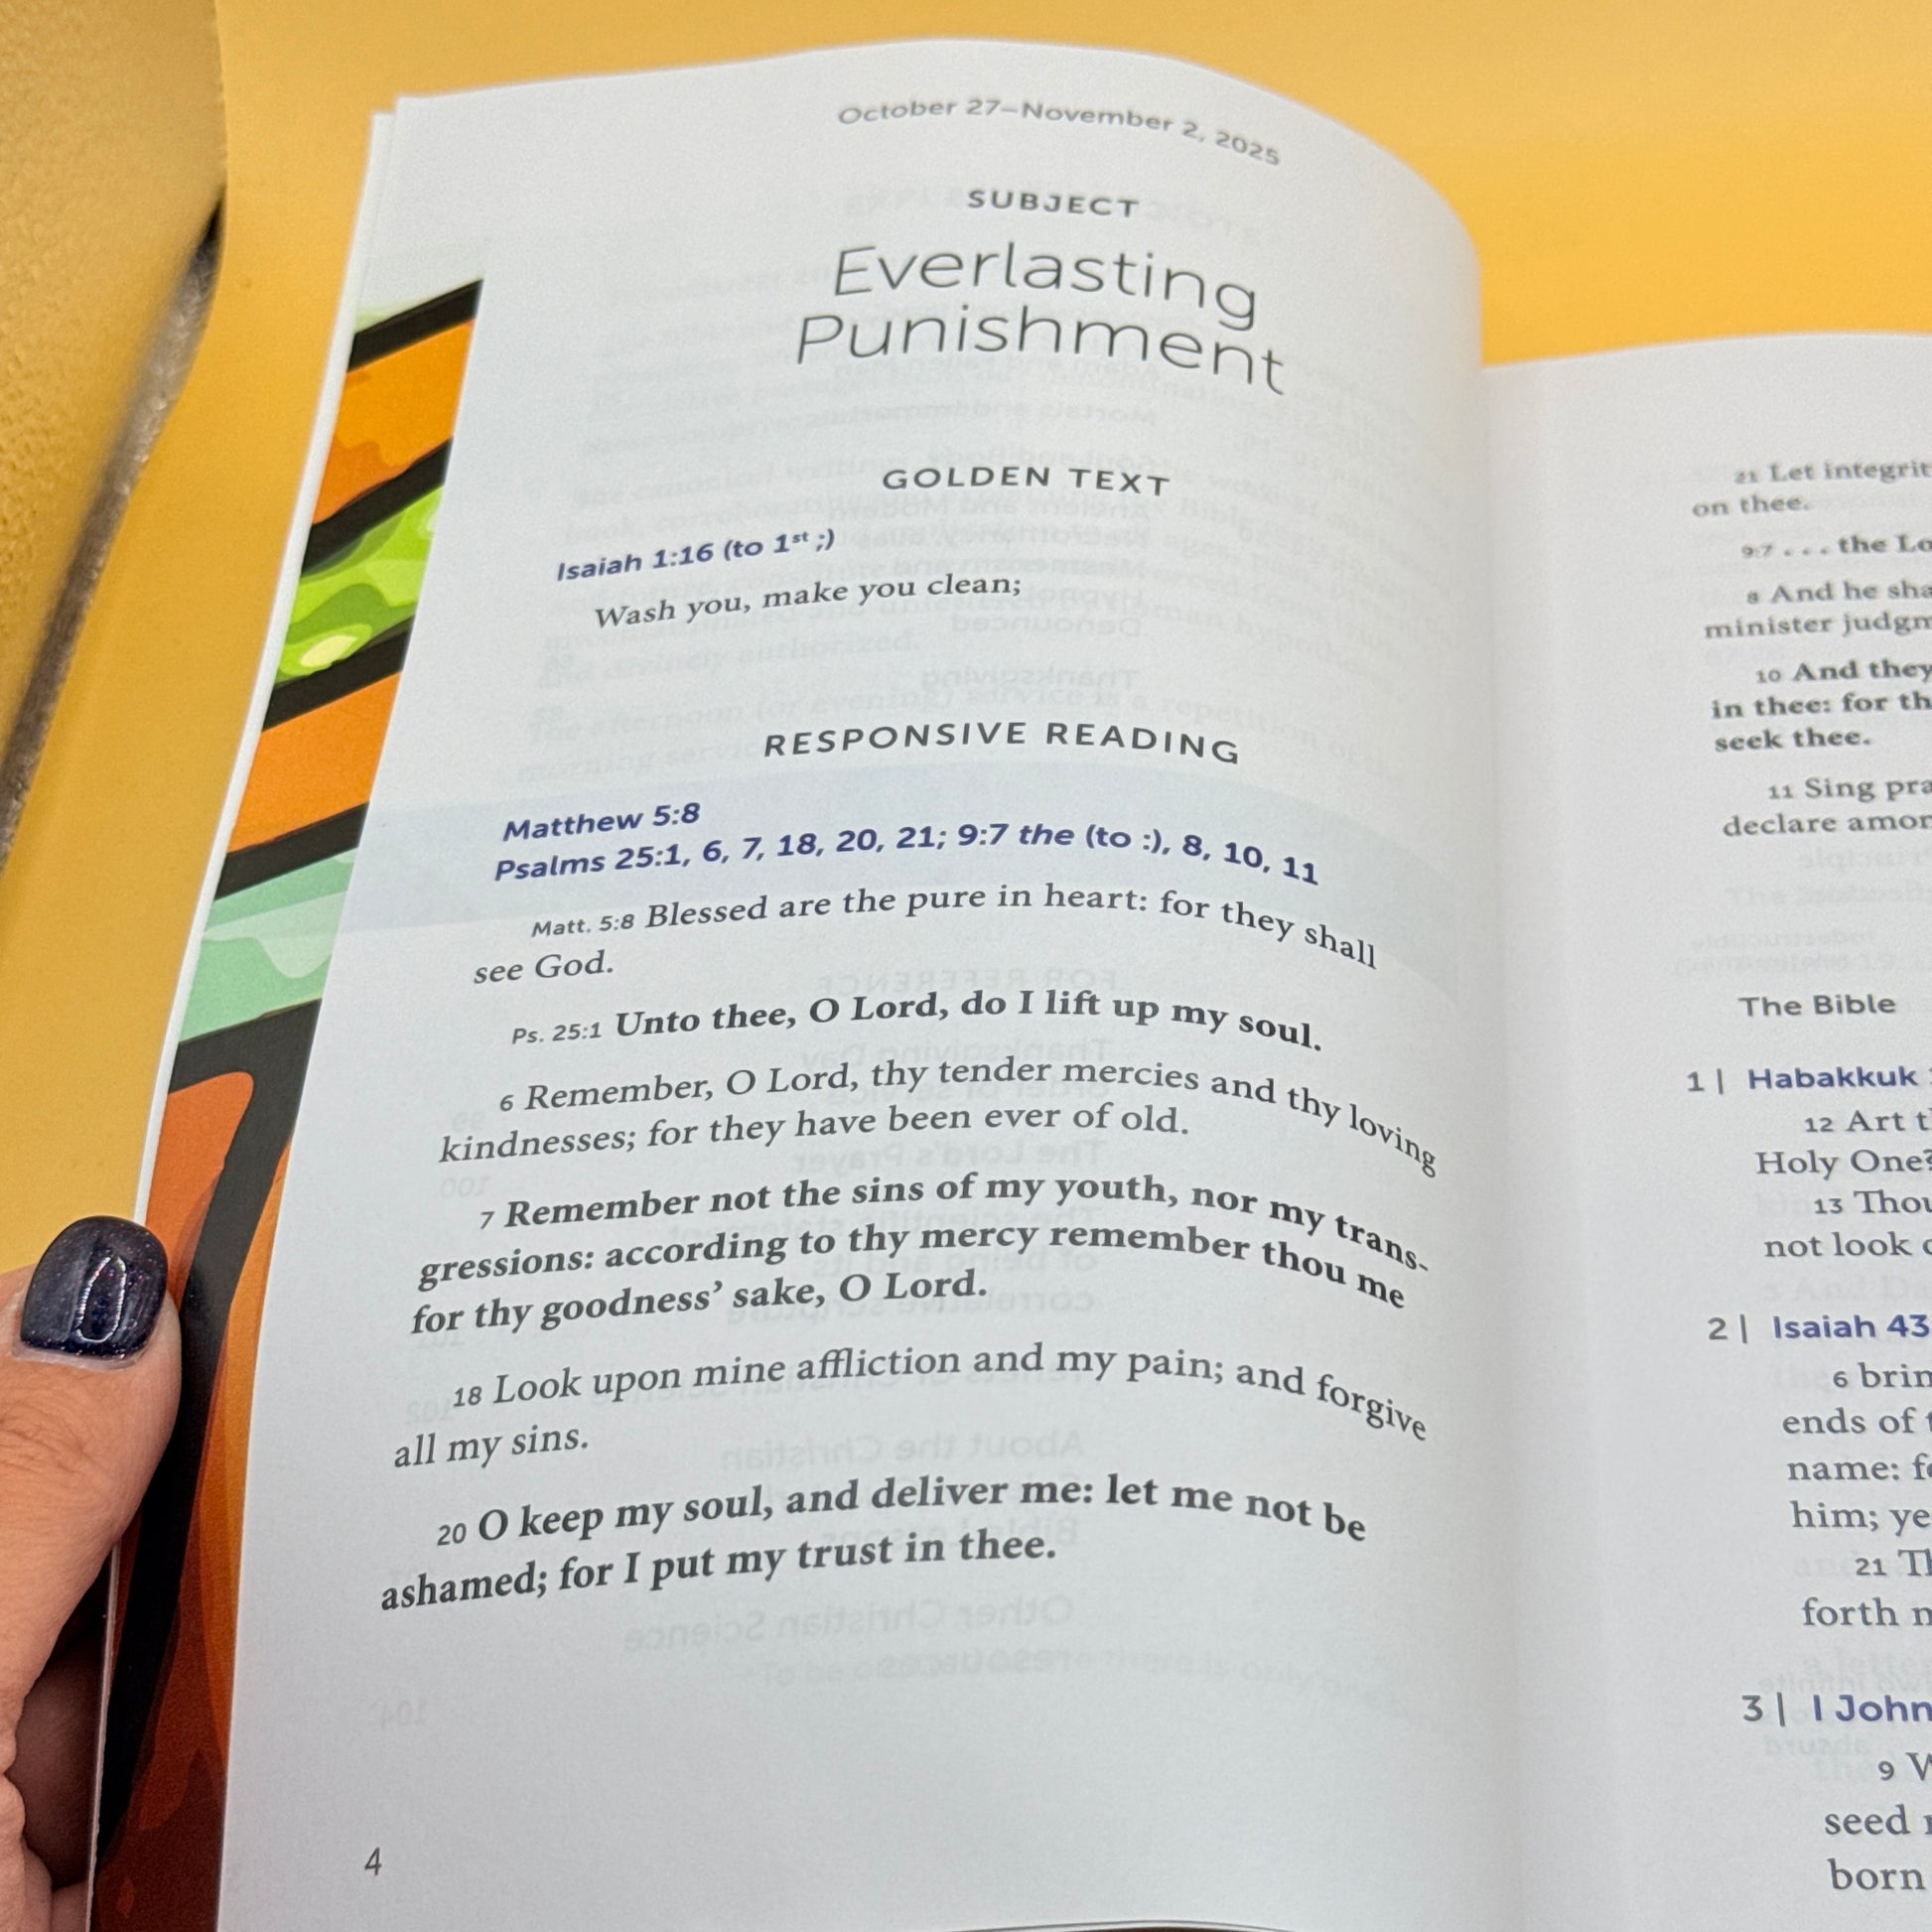 October 27–November 2, 2025
SUBJECT
Everlasting
Punishment
GOLDEN TEXT
Isaiah 1:16 (to 1st ;)
Wash you, make you clean;
RESPONSIVE READING
Matthew 5:8
Psalms 25:1, 6, 7, 18, 20, 21; 9:7 the (to :), 8, 10, 11
Matt. 5:8 Blessed are the pure in heart: for they shall
see God.
Ps. 25:1 Unto thee, O Lord, do I lift up my soul.
6 Remember, O Lord, thy tender mercies and thy loving
kindnesses; for they have been ever of old.
7 Remember not the sins of my youth, nor my trans-
gressions: according to thy mercy remember thou me
for thy goodness’ sake, O Lord.
18 Look upon mine affliction and my pain; and forgive
all my sins.
20 O keep my soul, and deliver me: let me not be
ashamed; for I put my trust in thee.
4
21 Let integrit
on thee.
9:7 . . . the Lo
8 And he sha
minister judgm
10 And they
in thee: for th
seek thee.
11 Sing pra
declare amon
The Bible
1 | Habakkuk
12 Art t
Holy One?
13 Thou
not look o
2 | Isaiah 43
6 brin
ends of t
name: fo
him; ye
21 Th
forth m
3 | I John
9 W
seed r
born